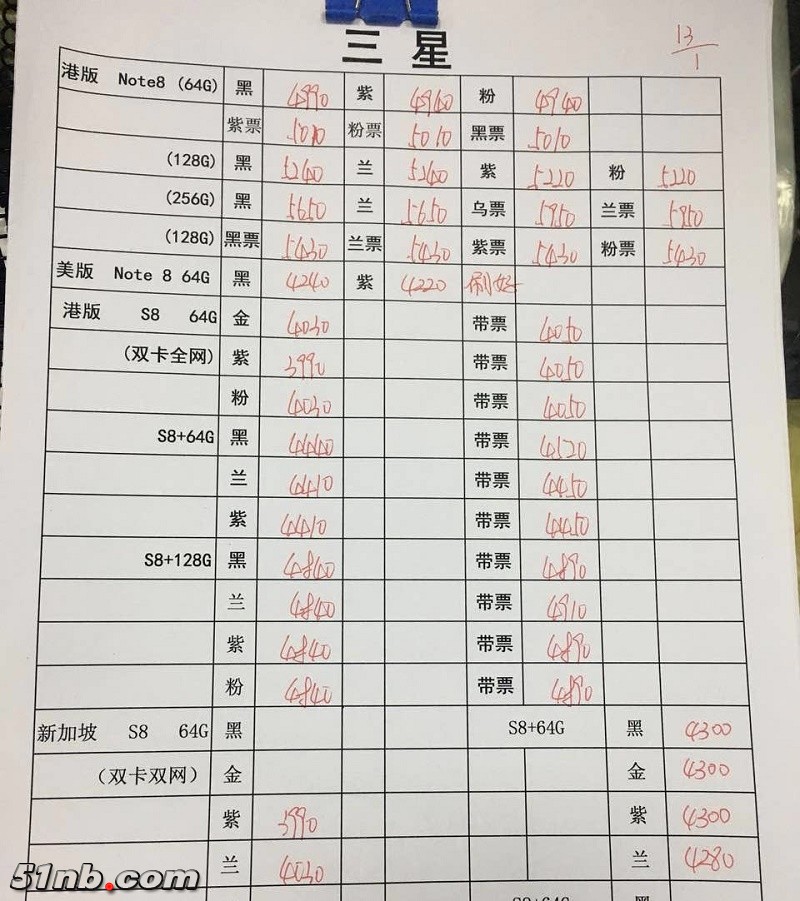 三星
13/1
港版 Note8 (64G) 黑 4990 紫 4940 粉 4940
紫票 5010 粉票 5010 黑票 5010
(128G) 黑 5240 兰 5240 紫 5220 粉 5220
(256G) 黑 5650 兰 5650 乌票 5950 兰票 5950
(128G) 黑票 5430 兰票 5430 紫票 5430 粉票 5430
美版 Note 8 64G 黑 4240 紫 4220 刷好
港版 S8 64G 金 4030 带票 4050
(双卡全网) 紫 3990 带票 4050
粉 4030 带票 4050
S8+64G 黑 4440 带票 4520
兰 4410 带票 4450
紫 4410 带票 4450
S8+128G 黑 4840 带票 4890
兰 4840 带票 4910
紫 4840 带票 4890
粉 4840 带票 4890
新加坡 S8 64G 黑 S8+64G 黑 4300
(双卡双网) 金 金 4300
紫 3990 紫 4300
兰 4030 兰 4280
S8+64G 黑
51nb.com